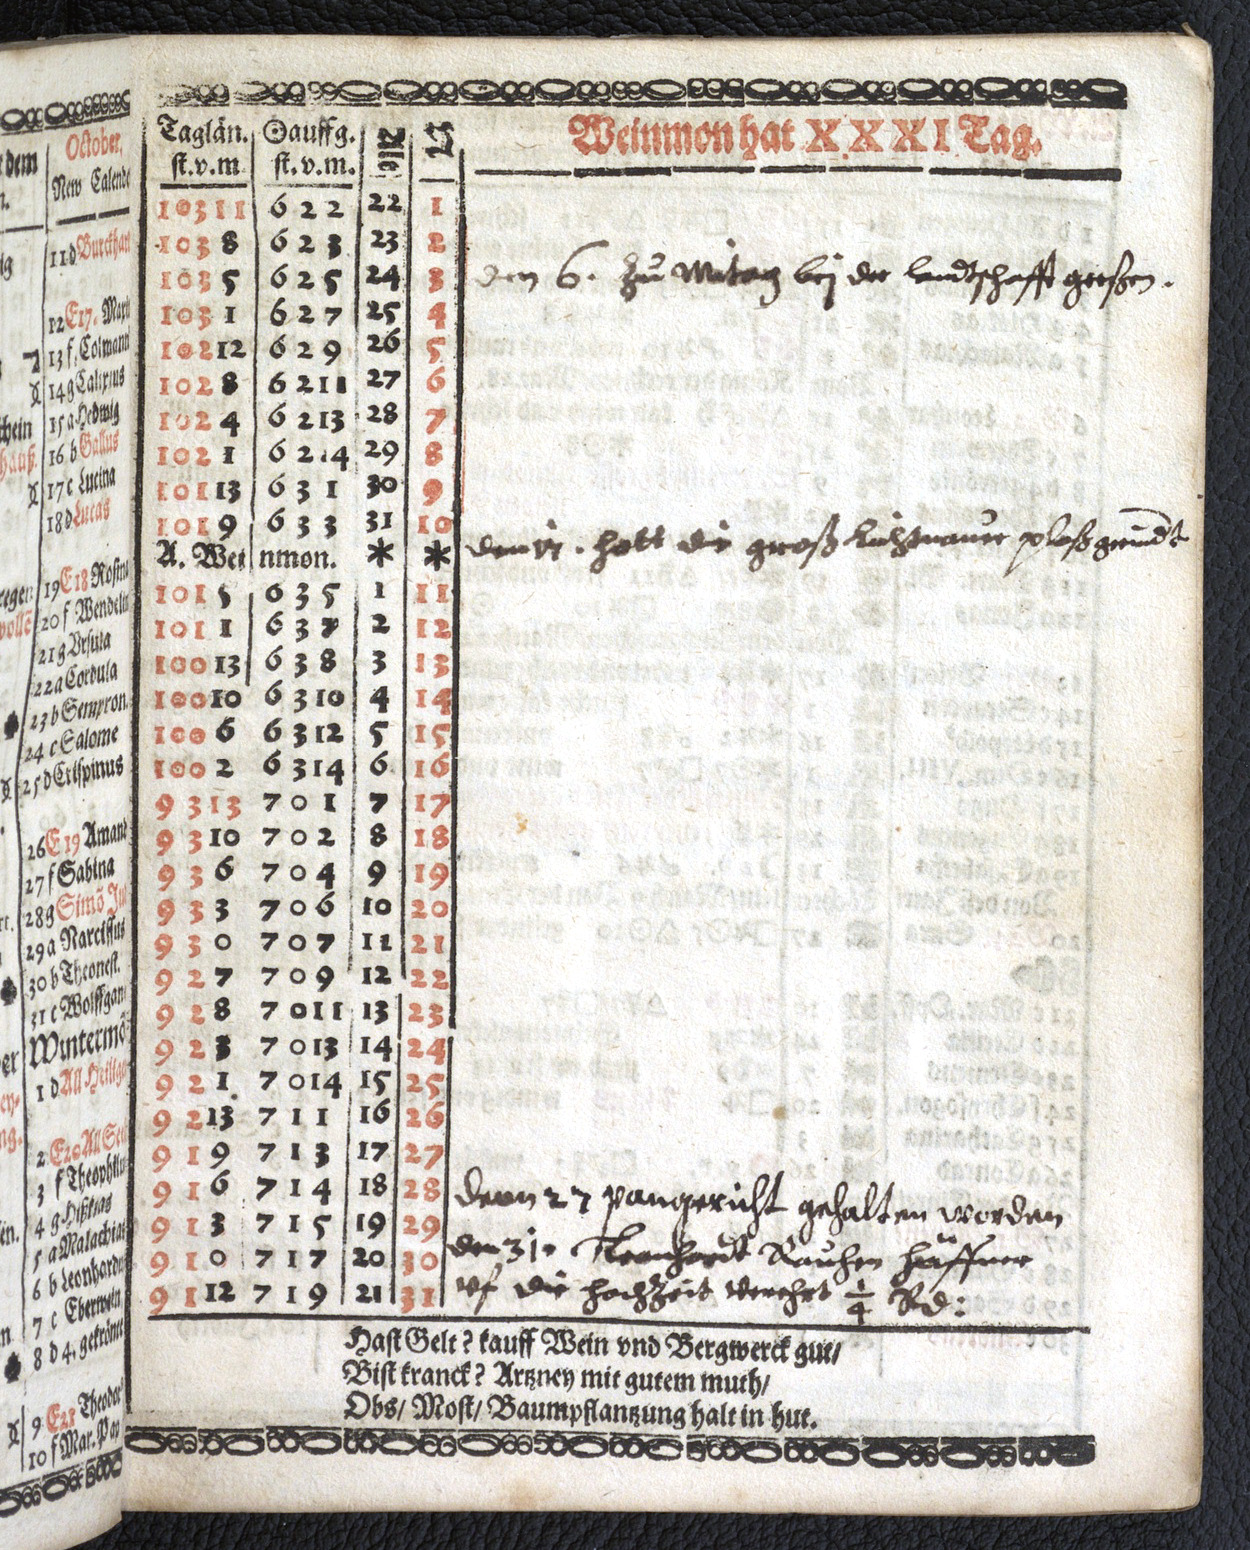 October,
New Calende
11 d Burckhart
12 E 17. Maxi
13 f. Colmann
14 g Calixtus
15 a Hedwig
16 b Gallus
17 c Lucina
18 d Lucas
19 E 18 Rosina
20 f Wendelin
21 g Vrsula
22 a Cordula
23 b Sempron.
24 c Salome
25 d Crispinus
26 E 19 Amand
27 f Sabina
28 g Simō Jud
29 a Narcissus
30 b Theonest.
31 c Wolffgang
Wintermō
1 d All Heilige
2 E 20 All See
3 f Theophilus
4 g
5 a Malachias
6 b Leonhardus
7 c Eberwein
8 d 4. gekrönte
9 E 21 Theodor
10 f Mar. Pap
Taglän. Sauffg. Alt
st. v. m st. v. m.
Weinmon hat XXXI Tag.
10 3 11 6 2 2 22 1
10 3 8 6 2 3 23 2
10 3 5 6 2 5 24 3
den 6. zu Mitag bej der landtschafft geeßen.
10 3 1 6 2 7 25 4
10 2 12 6 2 9 26 5
10 2 8 6 2 11 27 6
10 2 4 6 2 13 28 7
10 2 1 6 2 14 29 8
10 1 13 6 3 1 30 9
10 1 9 6 3 3 31 10
A. Weinmon. * *
hatt die groß
10 1 5 6 3 5 1 11
10 1 1 6 3 7 2 12
10 0 13 6 3 8 3 13
10 0 10 6 3 10 4 14
10 0 6 6 3 12 5 15
10 0 2 6 3 14 6 16
9 3 13 7 0 1 7 17
9 3 10 7 0 2 8 18
9 3 6 7 0 4 9 19
9 3 3 7 0 6 10 20
9 3 0 7 0 7 11 21
9 2 7 7 0 9 12 22
9 2 8 7 0 11 13 23
9 2 3 7 0 13 14 24
9 2 1 7 0 14 15 25
9 2 13 7 1 1 16 26
9 1 9 7 1 3 17 27
9 1 6 7 1 4 18 28
denn 27 pangericht gehalten worden
9 1 3 7 1 5 19 29
den 31. Leonhardt Rauhen häffner
9 1 0 7 1 7 20 30
vf die hochzeit verehrt 1/4 Rd:
9 1 12 7 1 9 21 31
Hast Gelt? kauff Wein vnd Bergwerck gut/
Bist kranck? Artzney mit gutem muth/
Obs/ Most/ Baumpflantzung halt in hut.